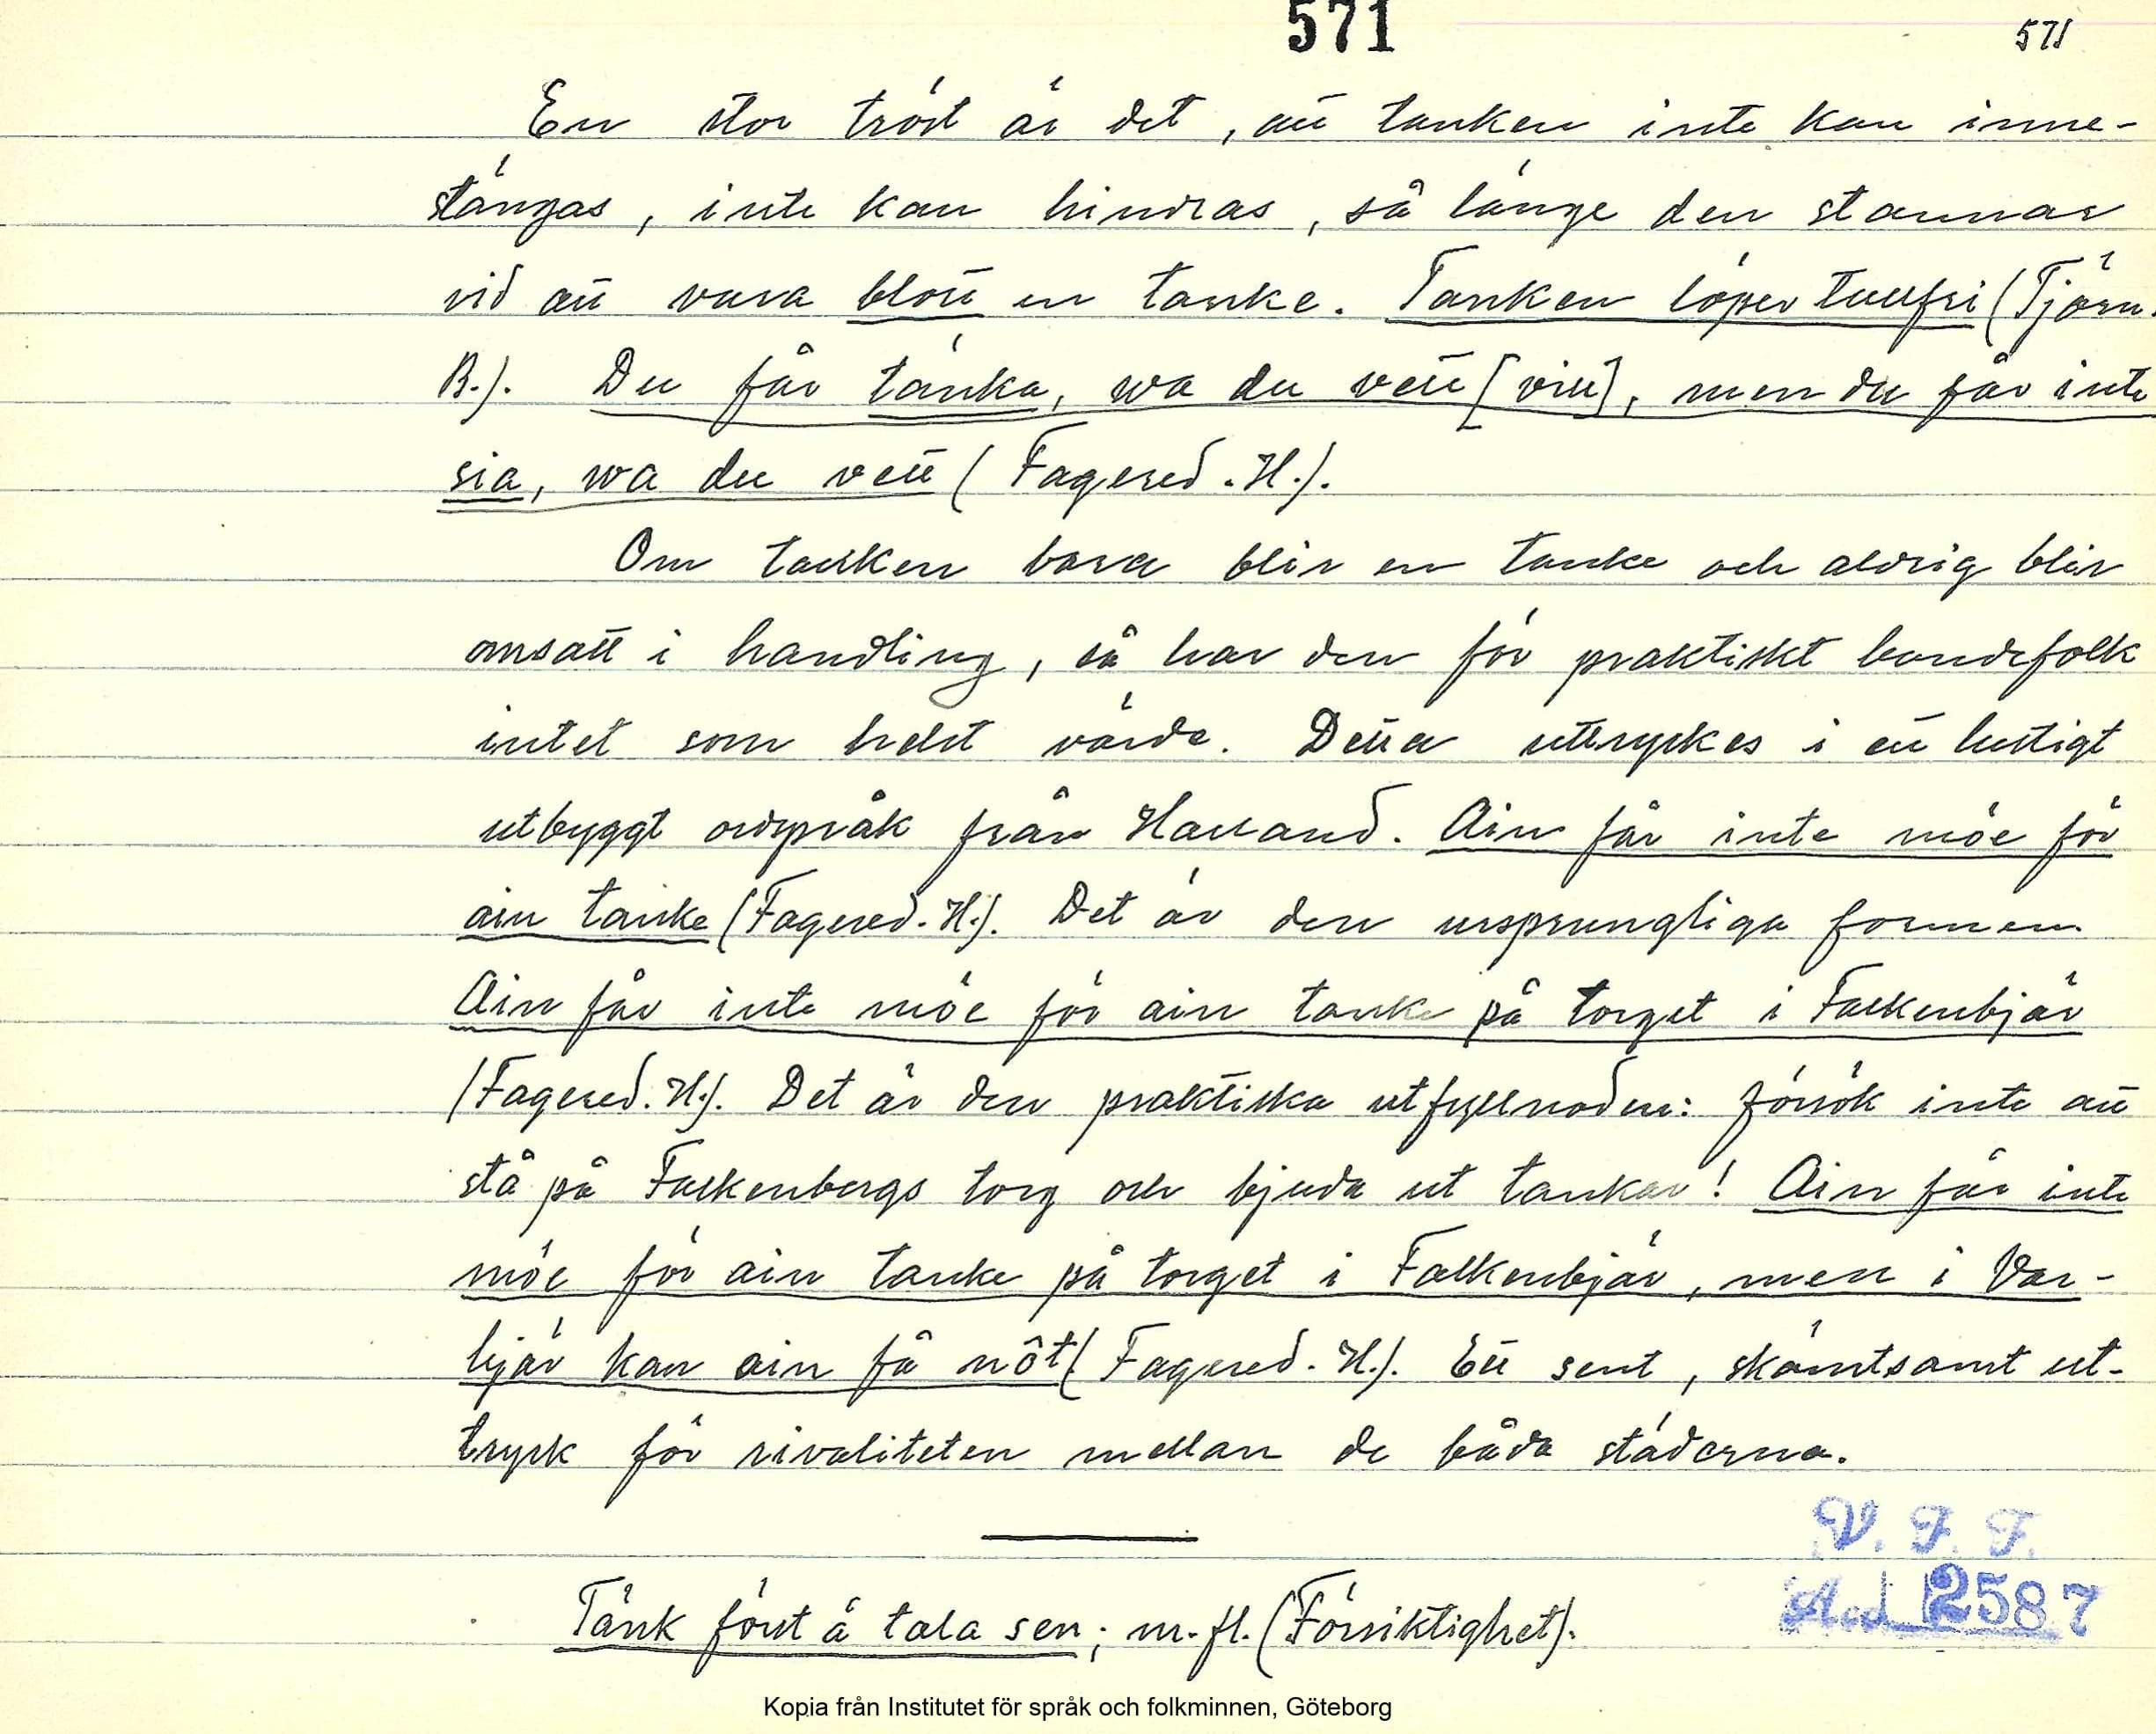 571
571
En stor tröst är det, att tanken inte kan inne-
stängas, inte kan hindras, så länge den stannar
vid att vara blott en tanke. Tanken löper tullfri (Tjörn.
B.). Du får tänka, va du vell [vill], men du får inte
sia, va du vell (Fagered. H.).
Om tanken bara blir en tanke och aldrig blir
omsatt i handling, så har den för praktiskt bondefolk
intet som helst värde. Detta uttryckes i ett lustigt
utbyggt ordspråk från Halland. Ain får inte möe för
ain tanke (Fagered. H.). Det är den ursprungliga formen.
Ain får inte möe för ain tanke på torget i Falkenbjär
(Fagered. H.). Det är den praktiska utfyllnaden: försök inte att
stå på Falkenbergs torg och bjuda ut tankar! Ain får inte
möe för ain tanke på torget i Falkenbjär, men i Var-
bjär kan ain få nôt (Fagered. H.). Ett sent, skämtsamt ut-
tryck för rivaliteten mellan de båda städerna.
V. F. F.
Acc 2587
Tänk först å tala sen; m.fl. (Försiktighet).
Kopia från Institutet för språk och folkminnen, Göteborg